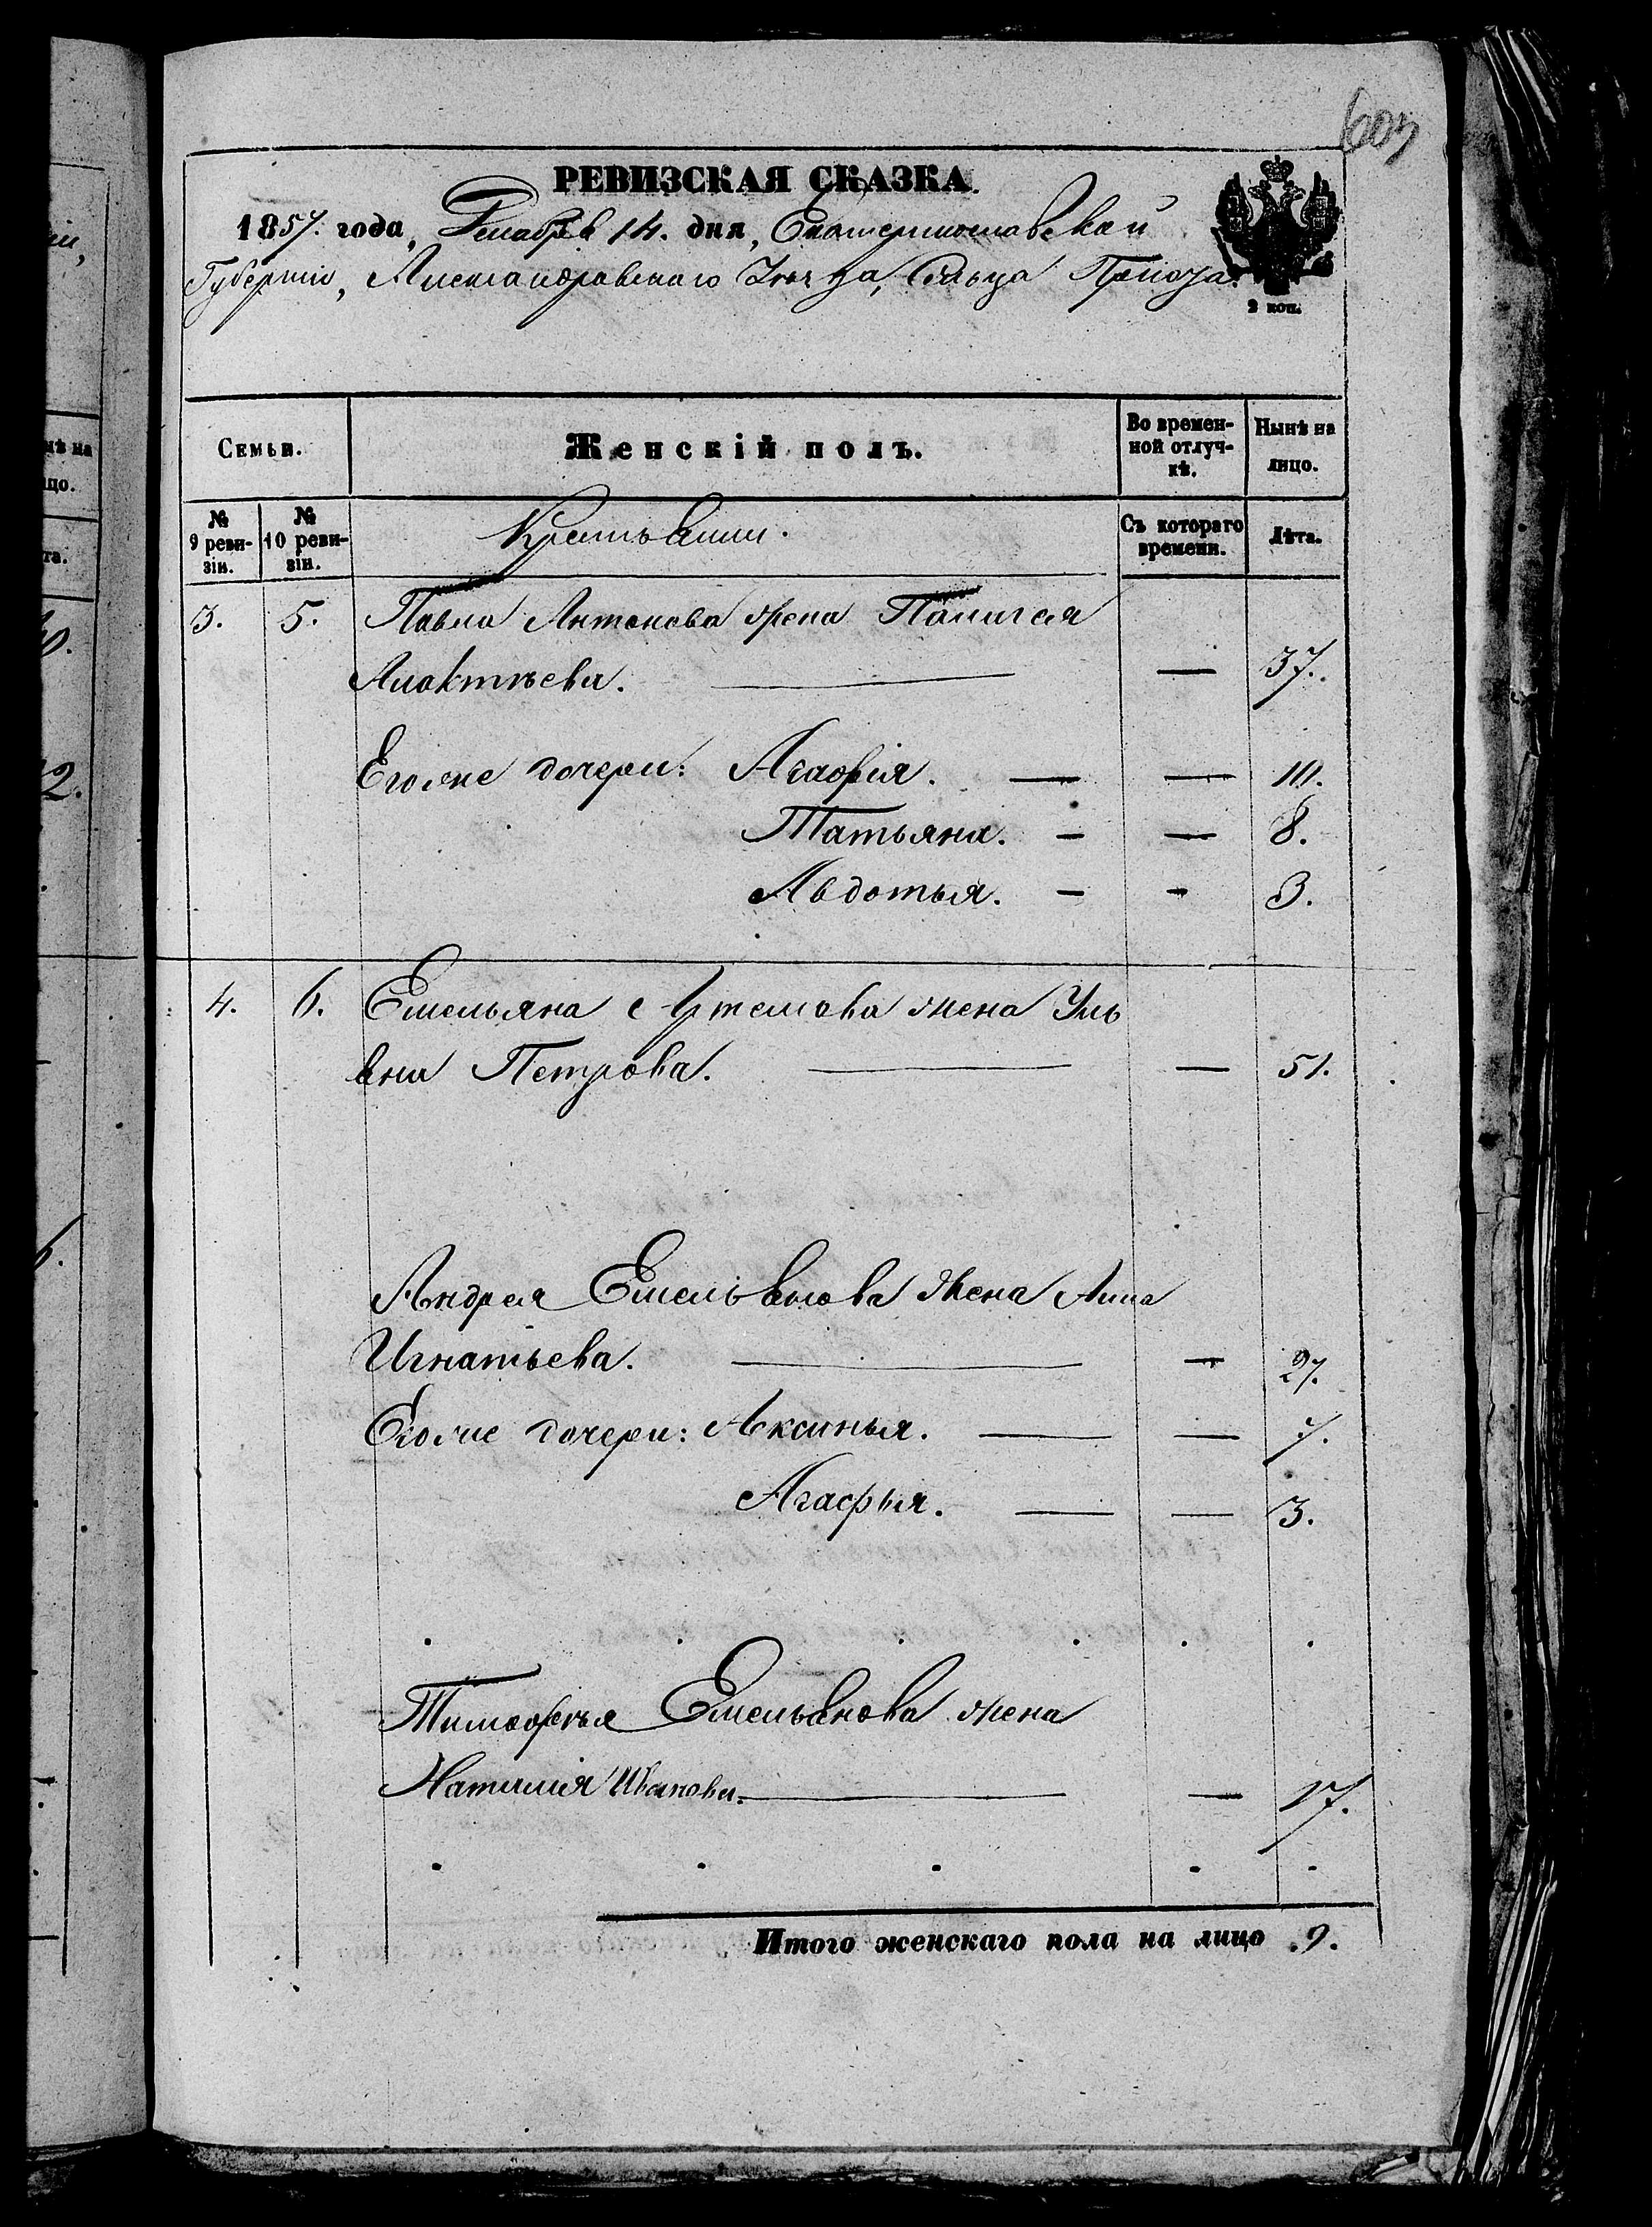 605
РЕВИЗСКАЯ СКАЗКА.
1857. года, Декабря 14. дня, Екатеринославской
Губерніи, Александровскаго Уѣзда, Сельца
2 коп.
Семьи.
Женскій полъ.
Во времен-
ной отлуч-
кѣ.
Нынѣ на
лицо.
№
9 реви-
зіи.
№
10 реви-
зіи.
Крестьяни.
Съ котораго
времени.
Лѣта.
3. 5. Павла Антонова жена Палагея
— 37.
Егоже дочери: Агафія. — — 10.
Татьяна. — — 8.
Авдотья. — — 3.
4. 6. Емельяна Артемова жена Уль
яна Петрова. — — 51.
Андрея Емельянова жена Анна
Игнатьева. — — 27.
Егоже дочери: Аксинья. — — 7.
Агафья. — — 3.
Тимофѣя Емельянова жена
Наталія Иванова. — — 17.
Итого женскаго пола на лицо .9.